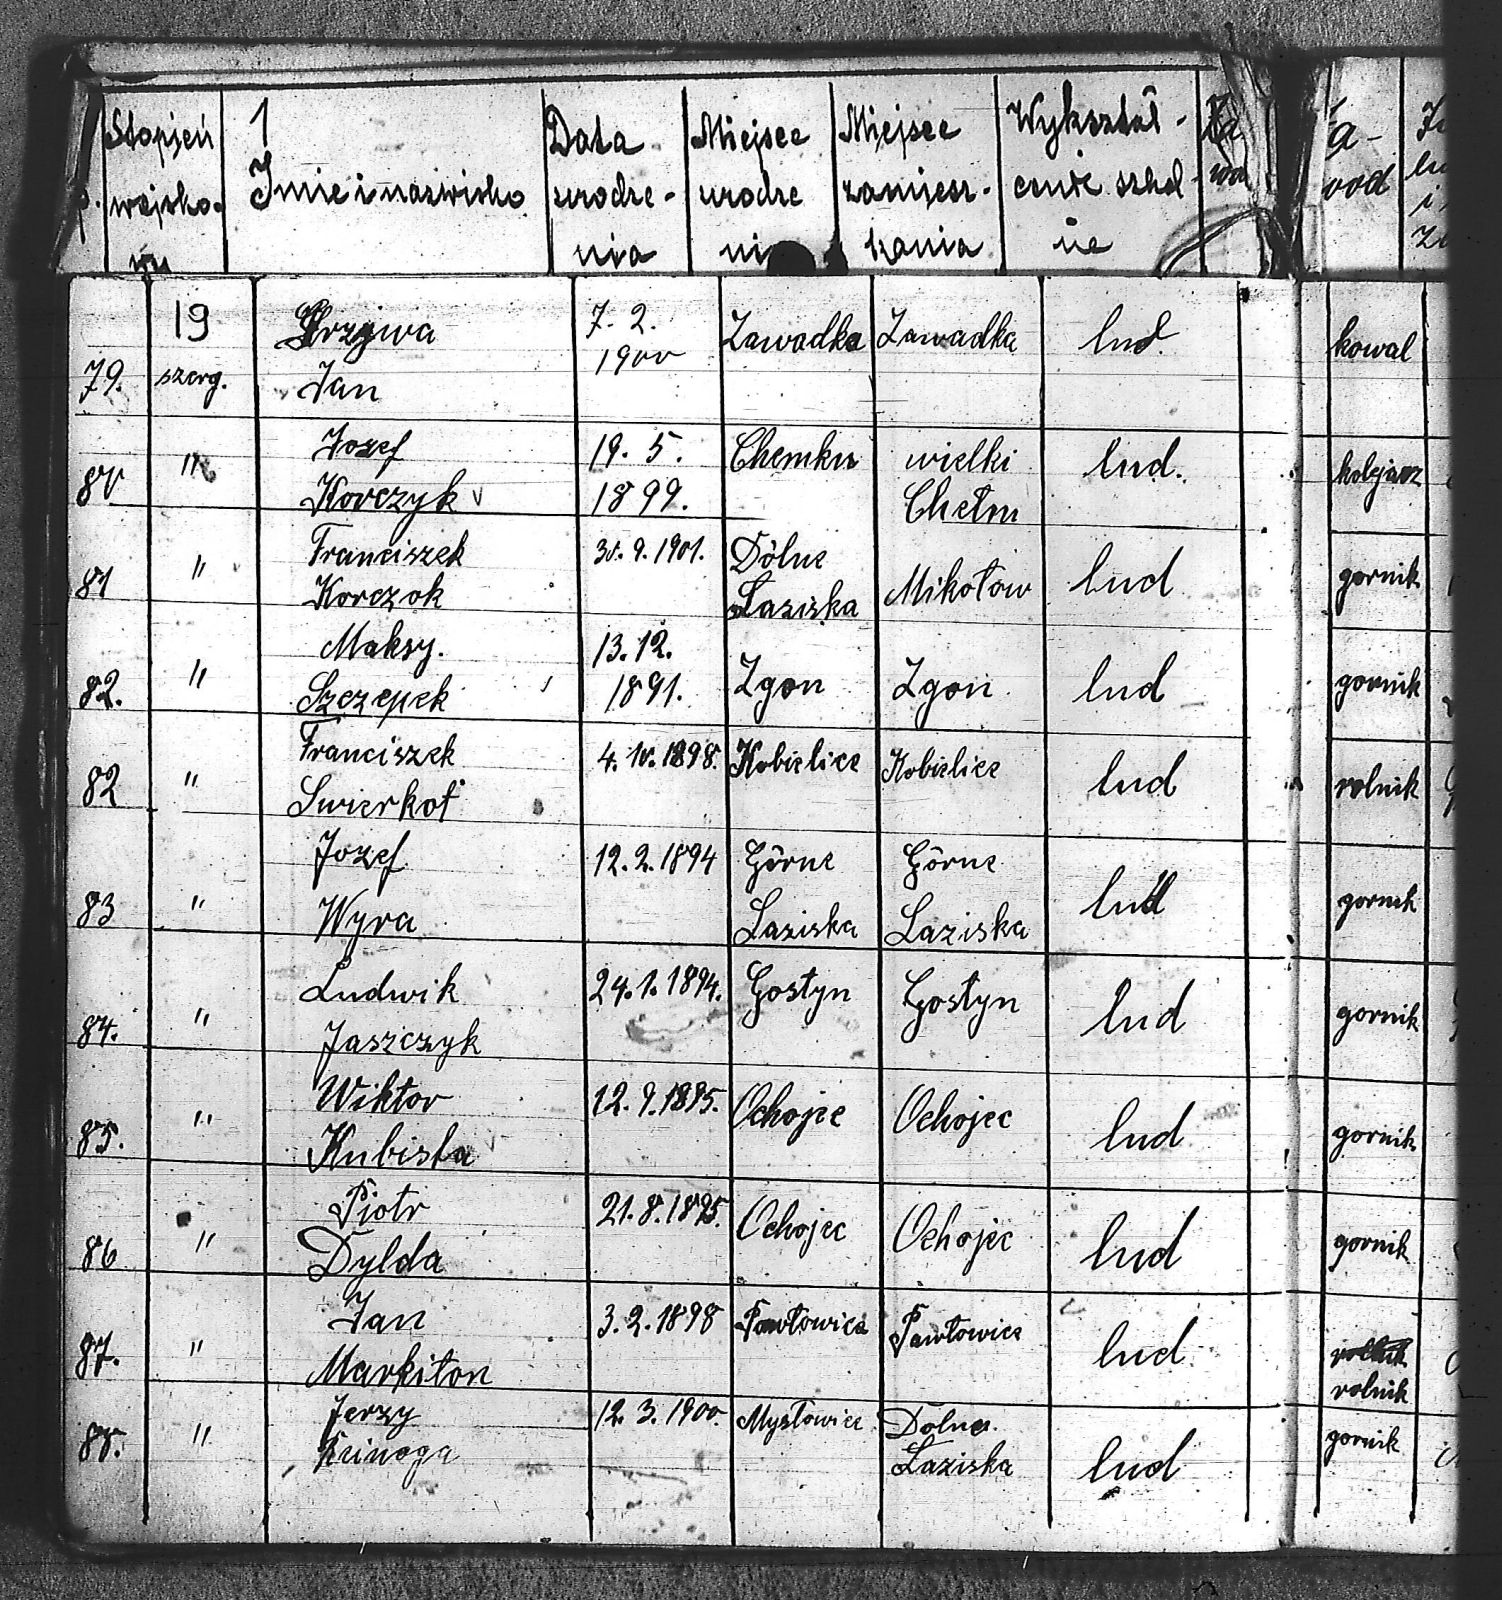 Stopień wojsko-
1
Imie i nazwisko
Data urodze-
nia
Miejsce urodze
Miejsce zamiesz-
kania
Wykształ-
cenie szkol-
ne
Za
wod
19
79. szerg. Krzywa Jan 7. 2. 1900 Zawadka Zawadka lud. kowal
80 " Jozef Korczyk v 19. 5. 1899. Chemku wielki Chełm lud. kolejarz
81 " Franciszek Korczok 30. 9. 1901. Dólne Łaziska Mikołow lud gornik
82. " Maksy. Szczepek 13. 12. 1891. Zgon Zgoń lud gornik
82 " Franciszek Swierkot 4. 10. 1898. Kobielice Kobielice lud rolnik
83 " Jozef Wyra 12. 2. 1894 Górne Łaziska Górne Łaziska lud gornik
84. " Ludwik Jaszczyk 24. 1. 1894. Gostyn Gostyn lud gornik
85. " Wiktor Kubista 12. 9. 1895. Ochojec Ochojec lud gornik
86 " Piotr Dylda 21. 8. 1895. Ochojec Ochojec lud gornik
87. " Jan Markiton 3. 2. 1898 Pawłowice Pawłowice lud rolnik
88. " Jerzy 12. 3. 1900. Mysłowice Dolne Łaziska lud gornik